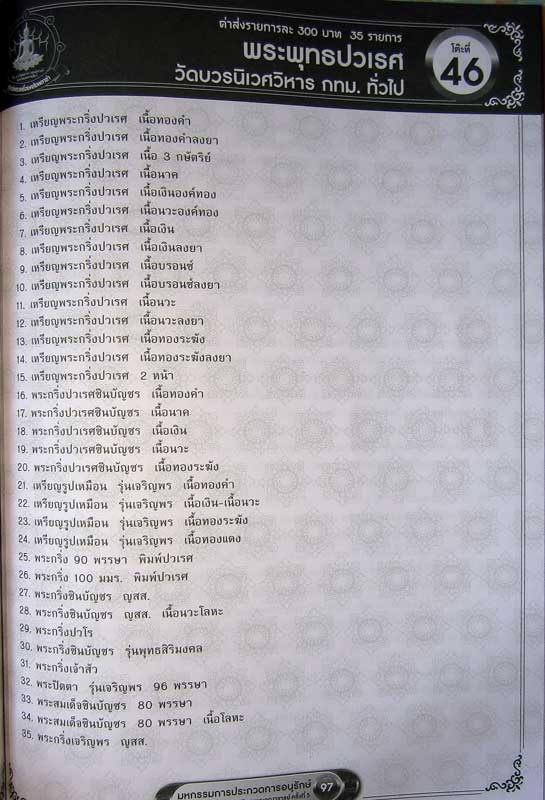 ค่าส่งรายการละ 300 บาท 35 รายการ
พระพุทธปวเรศ
วัดบวรนิเวศวิหาร กทม. ทั่วไป
โต๊ะที่
46
1. เหรียญพระกริ่งปวเรศ เนื้อทองคำ
2. เหรียญพระกริ่งปวเรศ เนื้อทองคำลงยา
3. เหรียญพระกริ่งปวเรศ เนื้อ 3 กษัตริย์
4. เหรียญพระกริ่งปวเรศ เนื้อนาค
5. เหรียญพระกริ่งปวเรศ เนื้อเงินองค์ทอง
6. เหรียญพระกริ่งปวเรศ เนื้อนวะองค์ทอง
7. เหรียญพระกริ่งปวเรศ เนื้อเงิน
8. เหรียญพระกริ่งปวเรศ เนื้อเงินลงยา
9. เหรียญพระกริ่งปวเรศ เนื้อบรอนซ์
10. เหรียญพระกริ่งปวเรศ เนื้อบรอนซ์ลงยา
11. เหรียญพระกริ่งปวเรศ เนื้อนวะ
12. เหรียญพระกริ่งปวเรศ เนื้อนวะลงยา
13. เหรียญพระกริ่งปวเรศ เนื้อทองระฆัง
14. เหรียญพระกริ่งปวเรศ เนื้อทองระฆังลงยา
15. เหรียญพระกริ่งปวเรศ 2 หน้า
16. พระกริ่งปวเรศชินบัญชร เนื้อทองคำ
17. พระกริ่งปวเรศชินบัญชร เนื้อนาค
18. พระกริ่งปวเรศชินบัญชร เนื้อเงิน
19. พระกริ่งปวเรศชินบัญชร เนื้อนวะ
20. พระกริ่งปวเรศชินบัญชร เนื้อทองระฆัง
21. เหรียญรูปเหมือน รุ่นเจริญพร เนื้อทองคำ
22. เหรียญรูปเหมือน รุ่นเจริญพร เนื้อเงิน-เนื้อนวะ
23. เหรียญรูปเหมือน รุ่นเจริญพร เนื้อทองระฆัง
24. เหรียญรูปเหมือน รุ่นเจริญพร เนื้อทองแดง
25. พระกริ่ง 90 พรรษา พิมพ์ปวเรศ
26. พระกริ่ง 100 มมร. พิมพ์ปวเรศ
27. พระกริ่งชินบัญชร ญสส.
28. พระกริ่งชินบัญชร ญสส. เนื้อนวะโลหะ
29. พระกริ่งปวโร
30. พระกริ่งชินบัญชร รุ่นพุทธสิริมงคล
31. พระกริ่งเจ้าสัว
32. พระปิดตา รุ่นเจริญพร 96 พรรษา
33. พระสมเด็จชินบัญชร 80 พรรษา
34. พระสมเด็จชินบัญชร 80 พรรษา เนื้อโลหะ
35. พระกริ่งเจริญพร ญสส.
มหกรรมการประกวดการอนุรักษ์
97